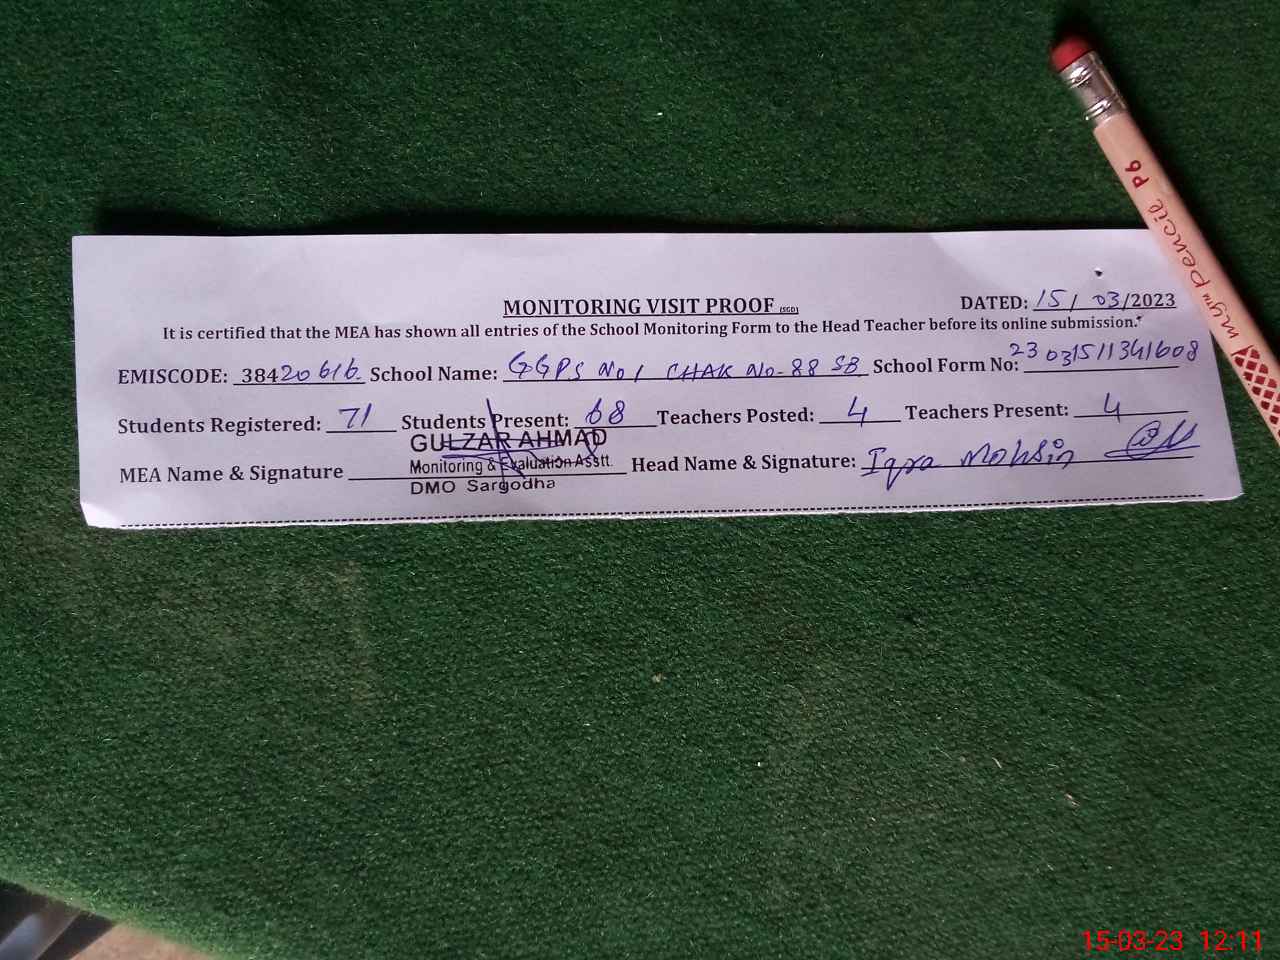 MONITORING VISIT PROOF (SGD)
DATED: 15/ 03/2023
It is certified that the MEA has shown all entries of the School Monitoring Form to the Head Teacher before its online submission.
EMISCODE: 38420616 School Name: GGPS No 1 CHAK No-88 SB School Form No: 23031511341608
Students Registered: 71 Students Present: 68 Teachers Posted: 4 Teachers Present: 4
GULZAR AHMAD
Monitoring & Evaluation Asstt.
DMO Sargodha
MEA Name & Signature Head Name & Signature: Iqra Mohsin
my pencile P6
15-03-23 12:11